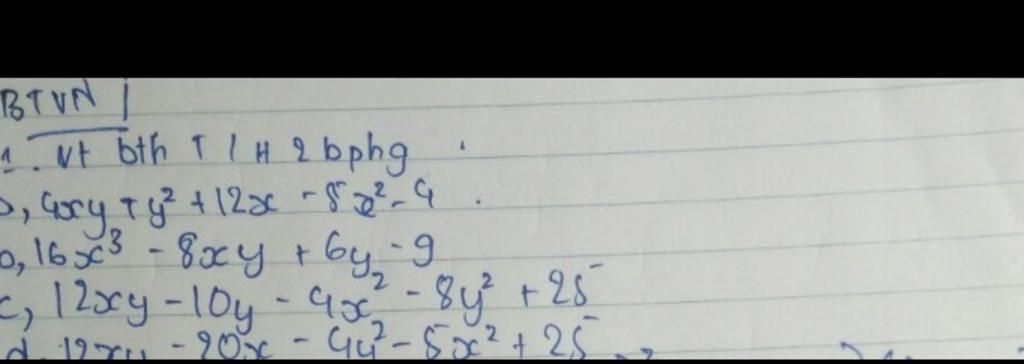 BTVN
1. Vt bth T / H 2 bphg
, 4xy + y² + 12x - 5x² - 9
, 16x³ - 8xy + 6y - 9
c, 12xy - 10y - 4x² - 8y² + 25
d, 12xy - 20x - 4y² - 5x² + 25